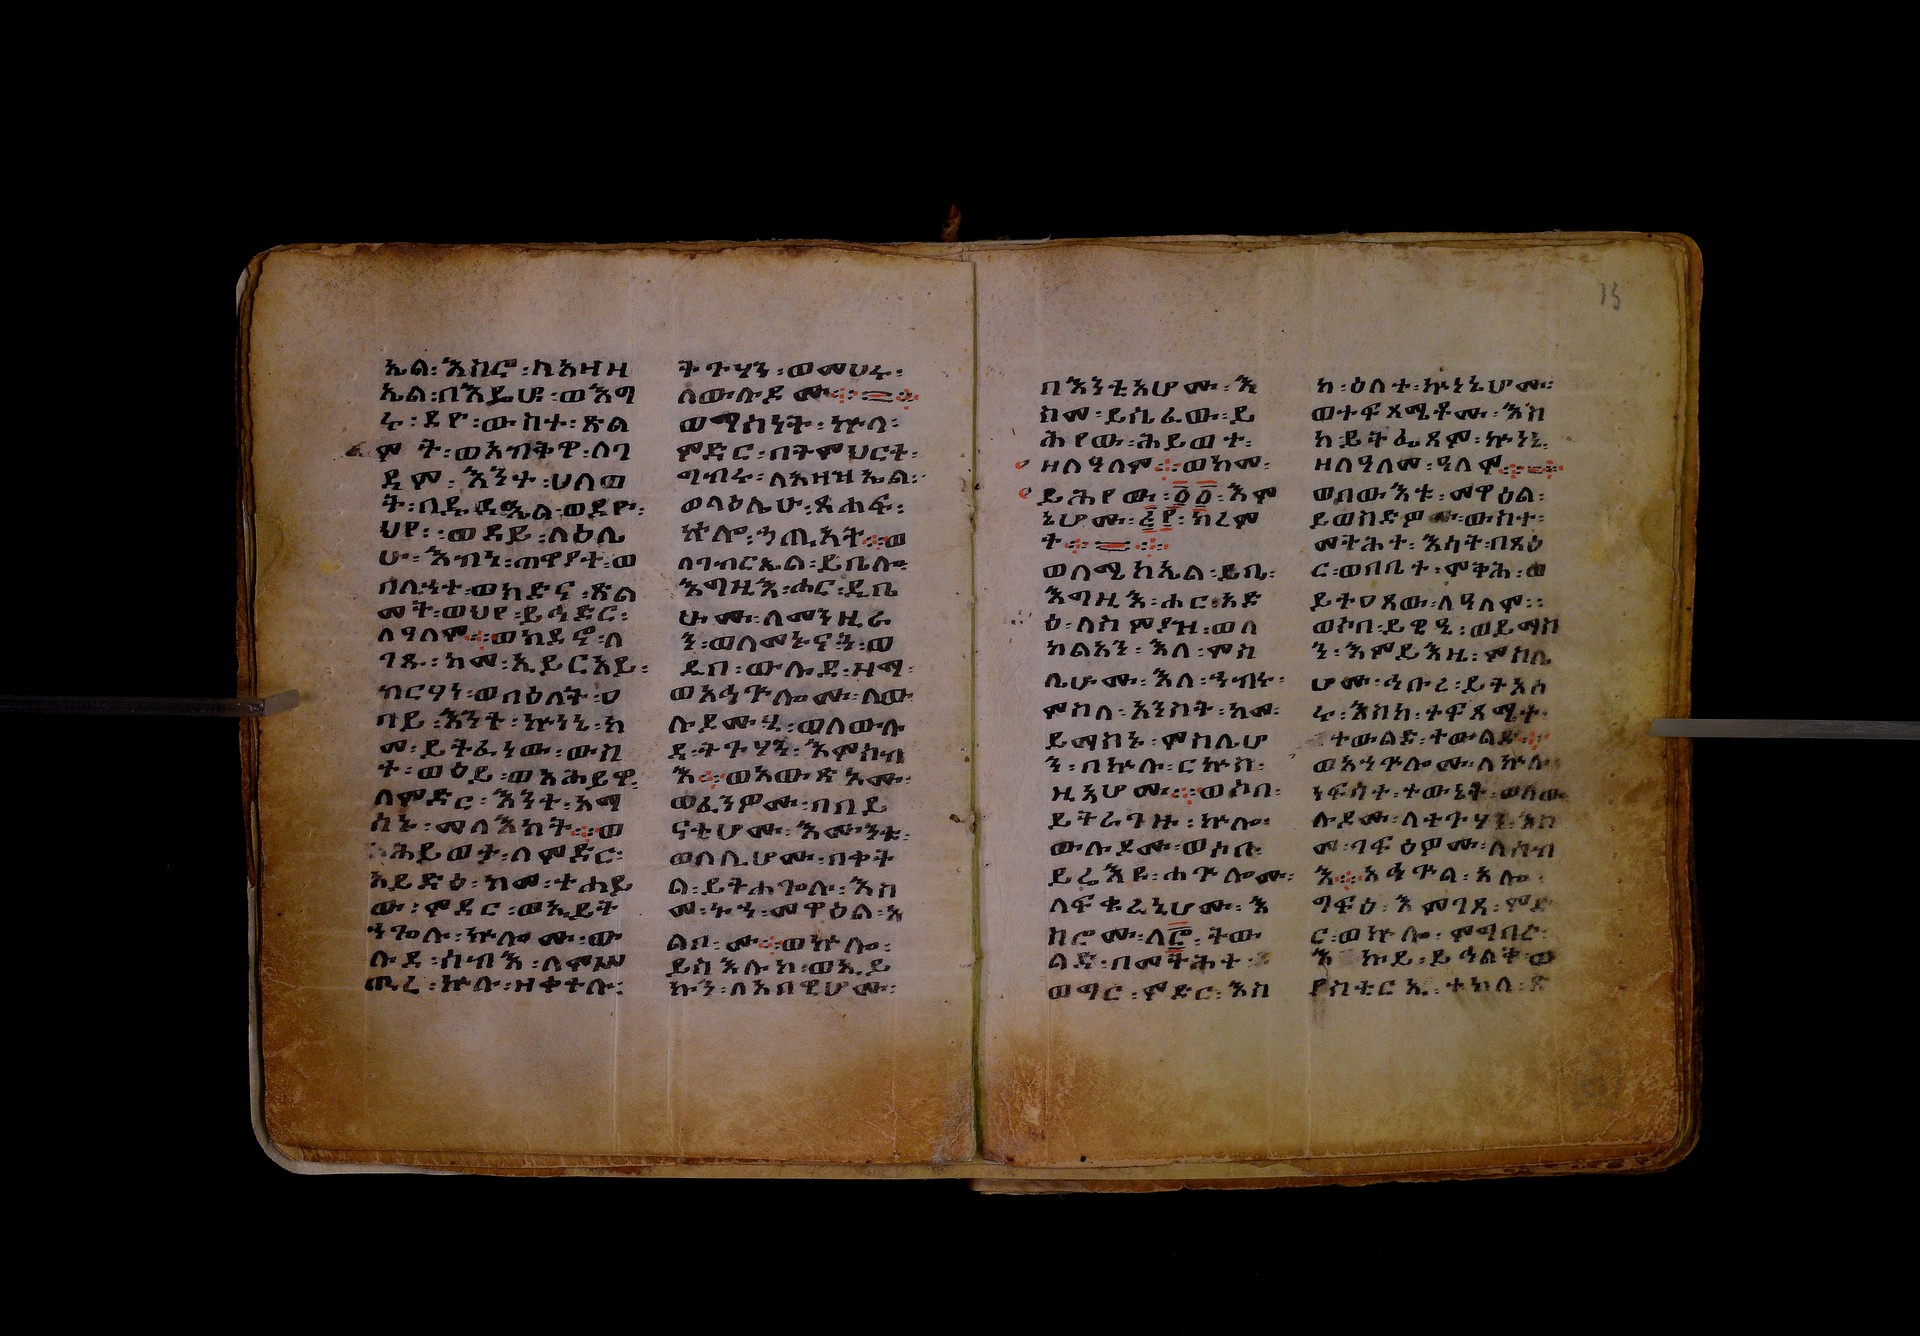 ኤል፡እስሮ፡ለአዛዝ
ኤል፡በእዴሁ፡ወእግ
ሩ፡ደዮ፡ውስተ፡ጽል
መት፡ወአብቅዋ፡ለገ
ዳም፡እንተ፡ሀለወ
ት፡በዱዳኤል፡ወደዮ፡
ህየ፡ወደይ፡ላዕሌ
ሁ፡እብነ፡ጠዋያተ፡ወ
በላኅተ፡ወክድኖ፡ጽል
መት፡ወህየ፡ይኅድር፡
ለዓለም፡ወክደኖ፡ለ
ገጹ፡ከመ፡ኢይርአይ፡
ብርሃነ፡ወበዕለት፡ዐ
ባይ፡እንተ፡ኵነኔ፡ከ
መ፡ይትፈነው፡ውስ
ተ፡ወዕይ፡ወአሕይዋ፡
ለምድር፡እንተ፡አማ
ሰኑ፡መላእክት፡ወ
ሕይወት፡ለምድር፡
አይድዕ፡ከመ፡ተሐይ
ው፡ምድር፡ወኢይት
ኀጐሉ፡ኵሎሙ፡ው
ሉደ፡ሰብእ፡ለምሥ
ጢረ፡ኵሉ፡ዘቀተሉ፡
ትጉሃን፡ወመሀሩ፡
ለውሉዶሙ፡
ወማሰነት፡ኵላ፡
ምድር፡በትምህርተ፡
ግብሩ፡ለአዛዝኤል፡
ወላዕሌሁ፡ጸሐፍ፡
ኵሎ፡ኃጢአት፡ወ
ለገብርኤል፡ይቤሎ፡
እግዚእ፡ሑር፡ዲቤ
ሆሙ፡ለመንዚራ
ን፡ወለመኑናን፡ወ
ደበ፡ውሉደ፡ዘማ፡
ወአኅጕሎሙ፡ለው
ሉደ፡ዘማ፡ወለውሉ
ደ፡ትጉሃን፡እምሰብ
እ፡ወአውጽኦሙ፡
ወፈንዎሙ፡በበይ
ናቲሆሙ፡እሙንቱ፡
ወለሊሆሙ፡በቀት
ል፡ይትሐጐሉ፡እስ
መ፡ኑኀ፡መዋዕል፡አ
ልቦሙ፡ወኵሎ፡
ይስእሉከ፡ወኢይ
ኩን፡ለአበዊሆሙ፡
በእንቲአሆሙ፡እ
ስመ፡ይሴፈው፡ይ
ሕየው፡ሕይወተ፡
ዘለዓለም፡ወከመ፡
ይሕየው፡፩፩፡እም
ኔሆሙ፡፭፻፡ክረም
ተ፡
ወለሚካኤል፡ይቤ፡
እግዚእ፡ሑር፡አይድ
ዕ፡ለስምያዛ፡ወለ
ካልኣን፡እለ፡ምስ
ሌሁ፡እለ፡ኀብሩ፡
ምስለ፡አንስት፡ከመ፡
ይማስኑ፡ምስሌሆ
ን፡በኵሉ፡ርኵሰ፡
ዚኣሆሙ፡ወሶበ፡
ይትራገዙ፡ኵሎ፡
ውሉዶሙ፡ወሶበ፡
ይሬእዩ፡ሐጕሎሙ፡
ለፍቁራኒሆሙ፡እ
ስሮሙ፡ለ፸፡ትው
ልድ፡በመትሕተ፡
ወግር፡ምድር፡እስ
ከ፡ዕለተ፡ኵነኔሆሙ፡
ወተፍጻሜቶሙ፡እስ
ከ፡ይትፌጸም፡ኵነኔ፡
ዘለዓለመ፡ዓለም፡
ወበውእቱ፡መዋዕል፡
ይወስድዎሙ፡ውስተ፡
መትሕተ፡እሳት፡በጻዕ
ር፡ወበቤተ፡ሞቅሕ፡ወ
ይትዐጸው፡ለዓለም፡
ወሶበ፡ይውዒ፡ወይማስ
ን፡እምይእዜ፡ምስሌ
ሆሙ፡ኅቡረ፡ይትአሰ
ሩ፡እስከ፡ተፍጻሜተ፡
ትውልድ፡ትውልድ፡
ወአኅጕሎሙ፡ለኵሎ፡
ነፍሳተ፡ተውኔት፡ወለው
ሉዶሙ፡ለትጉሃን፡እስ
መ፡ገፍዕዎሙ፡ለሰብ
እ፡አኅጕል፡ኵሎ፡
ግፍዕ፡እምገጸ፡ምድ
ር፡ወኵሎ፡ምግባረ፡
እኩይ፡ይኅልቅ፡ወ
ያስተርኢ፡ተክለ፡ጽ